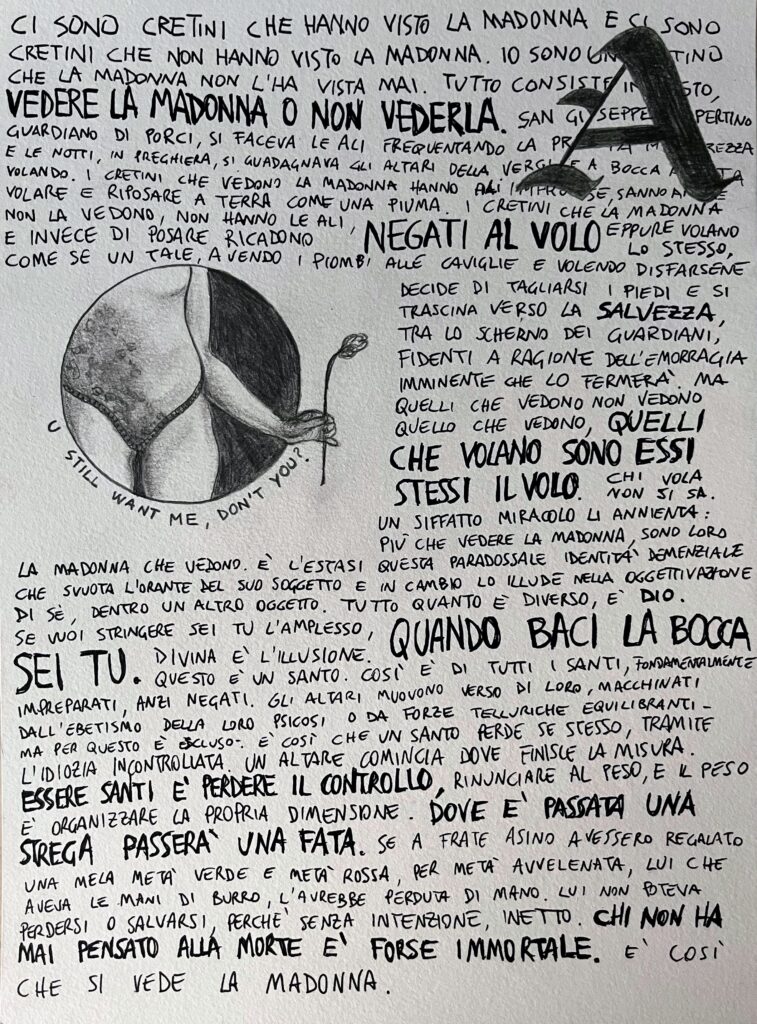 CI SONO CRETINI CHE HANNO VISTO LA MADONNA E CI SONO
CRETINI CHE NON HANNO VISTO LA MADONNA. IO SONO UN TINO
CHE LA MADONNA NON L'HA VISTA MAI. TUTTO CONSISTE IN STO,
VEDERE LA MADONNA O NON VEDERLA. SAN GI SEPPE PERTINO
GUARDIANO DI PORCI, SI FACEVA LE ALI FREQUENTANDO LA PR REZZA
E LE NOTTI, IN PREGHIERA, SI GUADAGNAVA GLI ALTARI DELLA VERGI E A BOCCA TA
VOLANDO. I CRETINI CHE VEDONO LA MADONNA HANNO ALI SE, SANNO AN E
VOLARE E RIPOSARE A TERRA COME UNA PIUMA. I CRETINI CHE LA MADONNA
NON LA VEDONO, NON HANNO LE ALI,
NEGATI AL VOLO EPPURE VOLANO
E INVECE DI POSARE RICADONO
LO STESSO,
COME SE UN TALE, AVENDO I PIOMBI ALLE CAVIGLIE E VOLENDO DISFARSENE
DECIDE DI TAGLIARSI I PIEDI E SI
TRASCINA VERSO LA SALVEZZA,
TRA LO SCHERNO DEI GUARDIANI,
FIDENTI A RAGIONE DELL'EMORRAGIA
IMMINENTE CHE LO FERMERA'. MA
QUELLI CHE VEDONO NON VEDONO
QUELLO CHE VEDONO, QUELLI
CHE VOLANO SONO ESSI
STESSI IL VOLO. CHI VOLA
NON SI SA.
UN SIFFATTO MIRACOLO LI ANNIENTA:
PIÙ CHE VEDERE LA MADONNA, SONO LORO
LA MADONNA CHE VEDONO. E' L'ESTASI QUESTA PARADOSSALE IDENTITA' DEMENZIALE
CHE SVUOTA L'ORANTE DEL SUO SOGGETTO E IN CAMBIO LO ILLUDE NELLA OGGETTIVAZIONE
DI SÈ, DENTRO UN ALTRO OGGETTO. TUTTO QUANTO E' DIVERSO, E' DIO.
SE VUOI STRINGERE SEI TU L'AMPLESSO, QUANDO BACI LA BOCCA
SEI TU. DIVINA E' L'ILLUSIONE.
QUESTO E' UN SANTO. COSÌ E' DI TUTTI I SANTI, FONDAMENTALMENTE
IMPREPARATI, ANZI NEGATI. GLI ALTARI MUOVONO VERSO DI LORO, MACCHINATI
DALL'EBETISMO DELLA LORO PSICOSI O DA FORZE TELLURICHE EQUILIBRANTI -
MA PER QUESTO E' ESCLUSO. E' COSÌ CHE UN SANTO PERDE SE STESSO, TRAMITE
L'IDIOZIA INCONTROLLATA. UN ALTARE COMINCIA DOVE FINISCE LA MISURA.
ESSERE SANTI E' PERDERE IL CONTROLLO, RINUNCIARE AL PESO, E IL PESO
E' ORGANIZZARE LA PROPRIA DIMENSIONE. DOVE E' PASSATA UNA
STREGA PASSERA' UNA FATA. SE A FRATE ASINO AVESSERO REGALATO
UNA MELA METÀ VERDE E METÀ ROSSA, PER METÀ AVVELENATA, LUI CHE
AVEVA LE MANI DI BURRO, L'AVREBBE PERDUTA DI MANO. LUI NON POTEVA
PERDERSI O SALVARSI, PERCHE' SENZA INTENZIONE, INETTO. CHI NON HA
MAI PENSATO ALLA MORTE E' FORSE IMMORTALE. E' COSÌ
CHE SI VEDE LA MADONNA.
A
U STILL WANT ME, DON'T YOU?